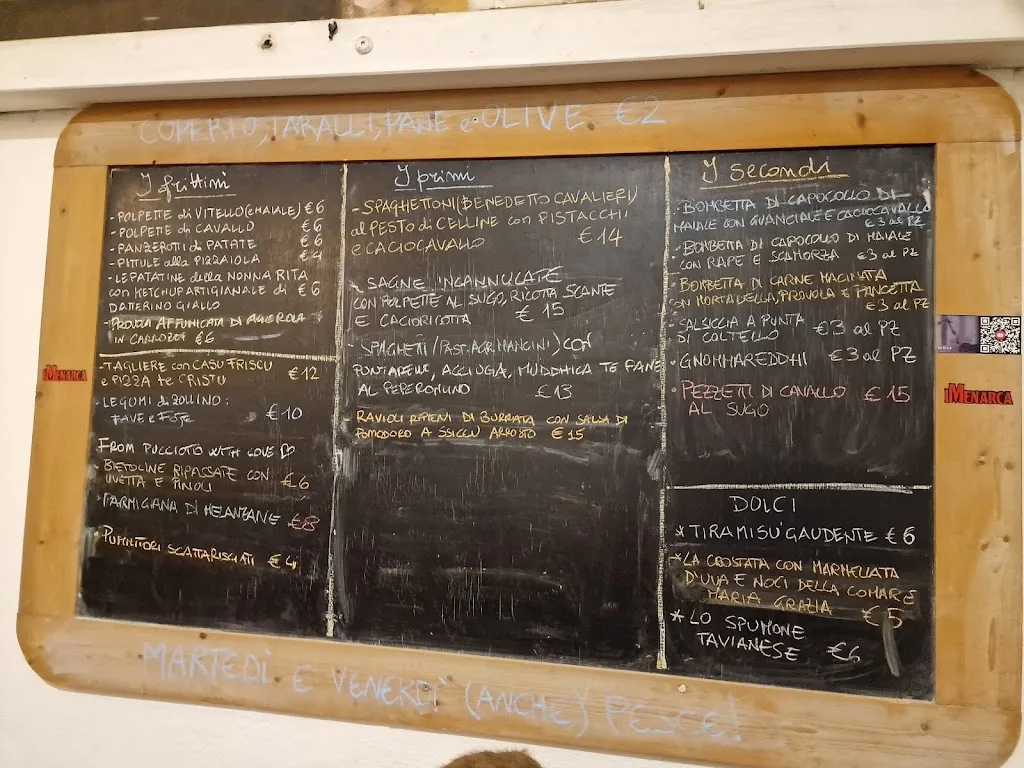 COPERTO, TARALLI, PANE e OLIVE €2
I frittini
- POLPETTE di VITELLO (e MAIALE) € 6
- POLPETTE di CAVALLO € 6
- PANZEROTI di PATATE € 6
- PITTULE alla PIZZAIOLA € 4
- LE PATATINE della NONNA RITA
con KETCHUP ARTIGIANALE di € 6
DATTERINO GIALLO
- PROVOLA AFFUMICATA DI AGEROLA
IN CARROZZA € 6
- TAGLIERE con CASU FRISCU
e PIZZA te CRISTU € 12
- LEGUMI di ZOLLINO:
FAVE e € 10
FROM PUCCIOTO WITH LOVE
BIETOLINE RIPASSATE CON
UVETTA E PINOLI € 6
PARMIGIANA DI MELANZANE € 8
- PUMMITORI SCATTARISCIATI € 4
I primi
- SPAGHETTONI (BENEDETTO CAVALIERI)
al PESTO di CELLINE con PISTACCHI
e CACIOCAVALLO € 14
* SAGNE 'NCANNULATE
CON POLPETTE AL SUGO, RICOTTA SCANTE
E CACIORICOTTA € 15
- SPAGHETI (PAST. AGR. MANCINI) CON
PUNTARELLE, ACCIUGA, MUDDHICA TE PANE
AL PEPERONCINO € 13
RAVIOLI RIPIENI DI BURRATA CON SALSA DI
POMODORO A SSICCU ARROSTO € 15
I secondi
- BOMBETTA DI CAPOCOLLO DI
MAIALE CON GUANCIALE E CACIOCAVALLO
€ 3 al PZ
- BOMBETTA DI CAPOCOLLO DI MAIALE
CON RAPE E SCAMORZA € 3 al PZ
- BOMBETTA DI CARNE MACINATA
CON MORTADELLA, PROVOLA E PANCETTA
€ 3 al PZ
- SALSICCIA A PUNTA
DI COLTELLO € 3 al PZ
- GNOMMAREDDHI € 3 al PZ
- PEZZETTI DI CAVALLO € 15
AL SUGO
DOLCI
* TIRAMISU' GAUDENTE € 6
* LA CROSTATA CON MARMELLATA
D'UVA E NOCI DELLA COMARE
MARIA GRAZIA € 5
* LO SPUMONE
TAVIANESE € 6
MARTEDÌ E VENERDÌ (ANCHE) PESCE!
iMENARCA
iMENARCA